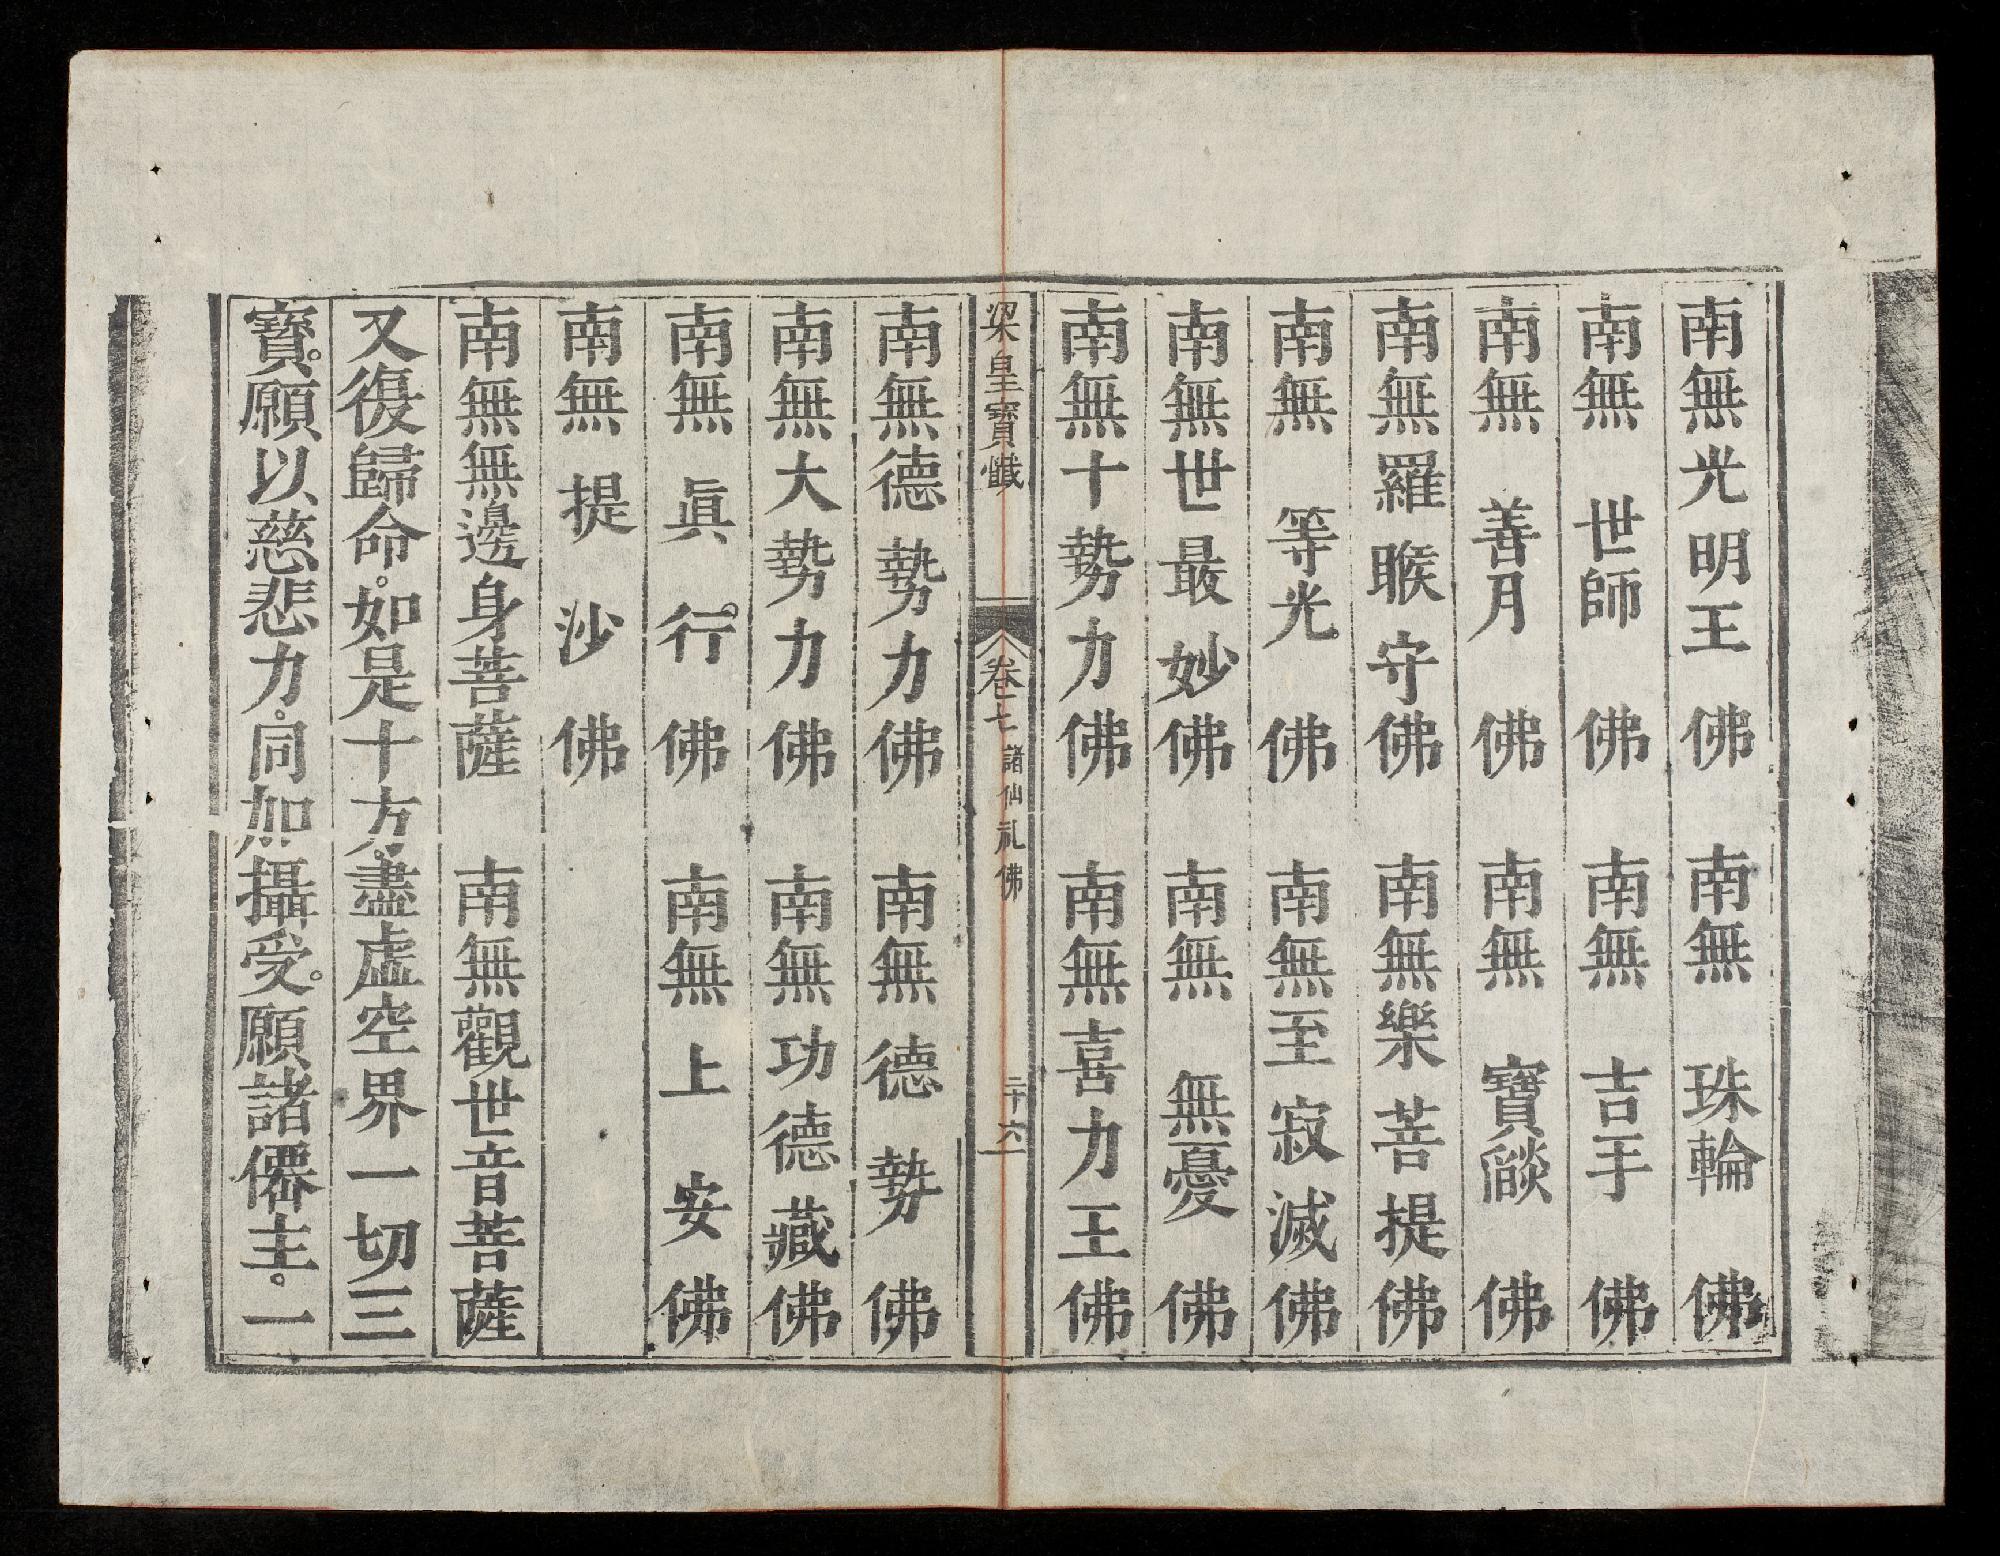 南無光明王佛　南無珠輪佛
南無世師佛　南無吉手佛
南無善月佛　南無寶燄佛
南無羅睺守佛　南無樂菩提佛
南無等光佛　南無至寂滅佛
南無世最妙佛　南無無憂佛
南無十勢力佛　南無喜力王佛
梁皇寶懺　卷七　諸仙礼佛　二十六
南無德勢力佛　南無德勢佛
南無大勢力佛　南無功德藏佛
南無眞行。佛　南無上安佛
南無提沙佛
南無無邊身菩薩　南無觀世音菩薩
又復歸命。如是十方。盡虛空界一切三
寶。願以慈悲力。同加攝受。願諸僊主。一